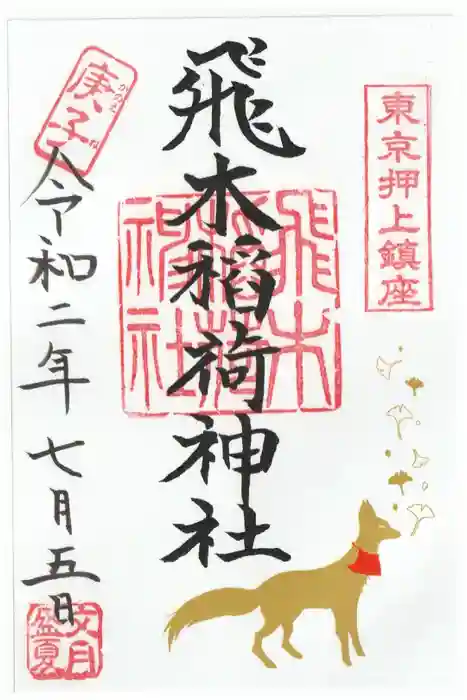 東京押上鎮座
飛木稲荷神社
飛木
稲荷
神社
庚子
かのえ
ね
令和二年 七月五日
文月
盛夏